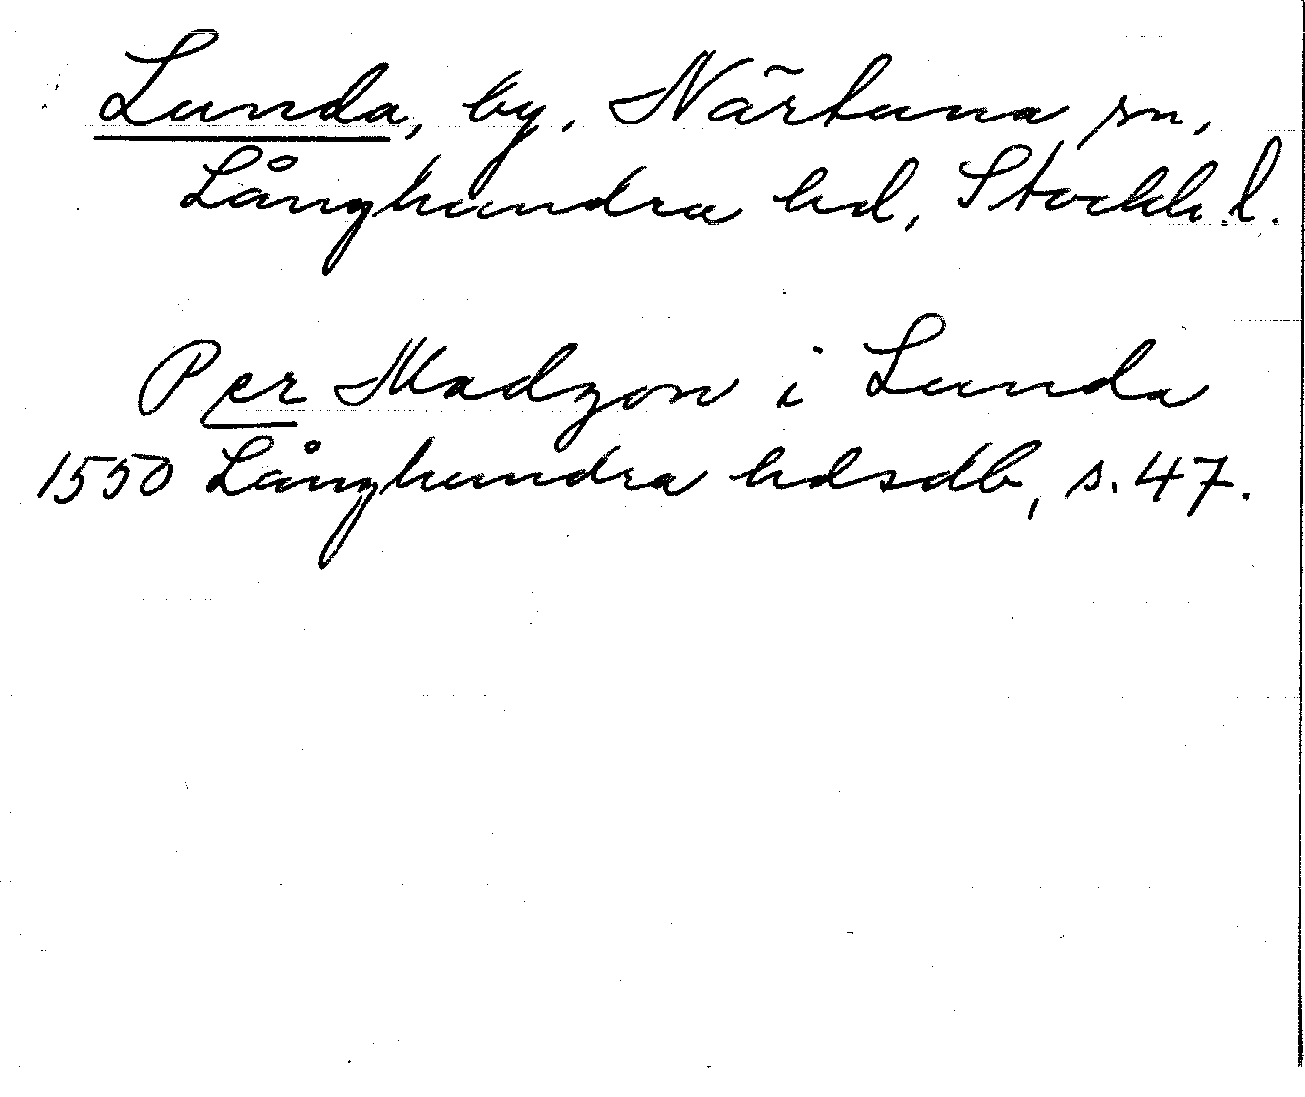 Lunda, by, Närtuna sn,
Långhundra hd, Stockh. l.
Per Madzon i Lunda
1550 Långhundra hdsdb, s. 47.